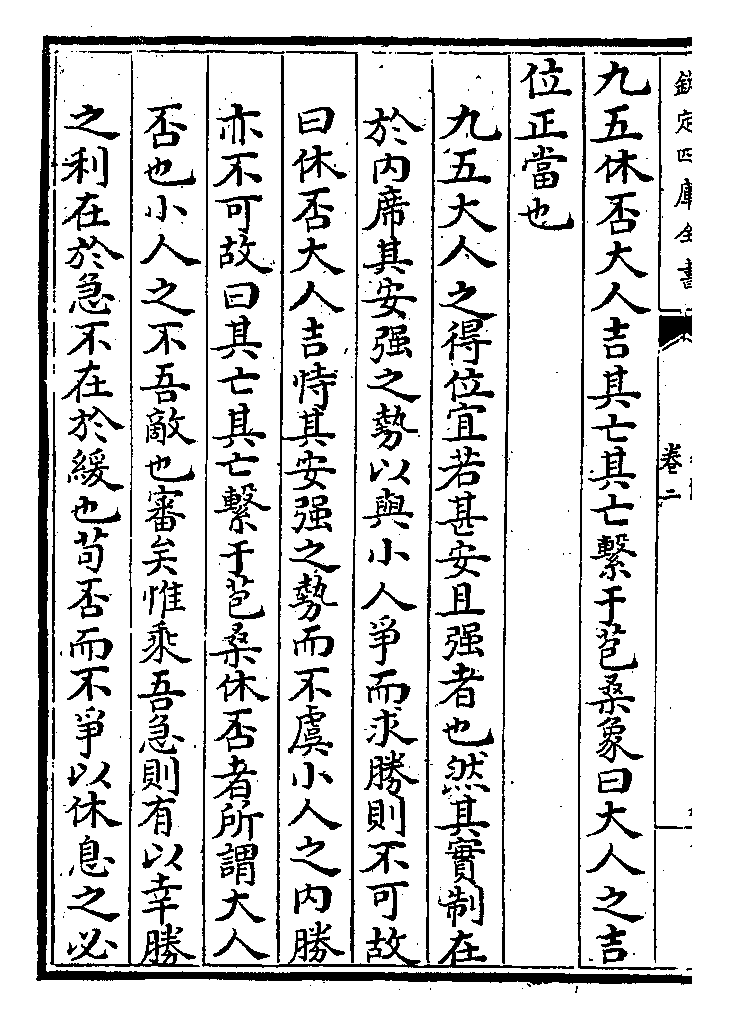 欽定四庫全書
卷二
九五休否大人吉其亡其亡繫于苞桑象曰大人之吉
位正當也
九五大人之得位宜若甚安且强者也然其實制在
於内席其安强之勢以與小人爭而求勝則不可故
曰休否大人吉恃其安强之勢而不虞小人之内勝
亦不可故曰其亡其亡繫于苞桑休否者所謂大人
否也小人之不吾敵也審矣惟乘吾急則有以幸勝
之利在於急不在於緩也苟否而不爭以休息之必